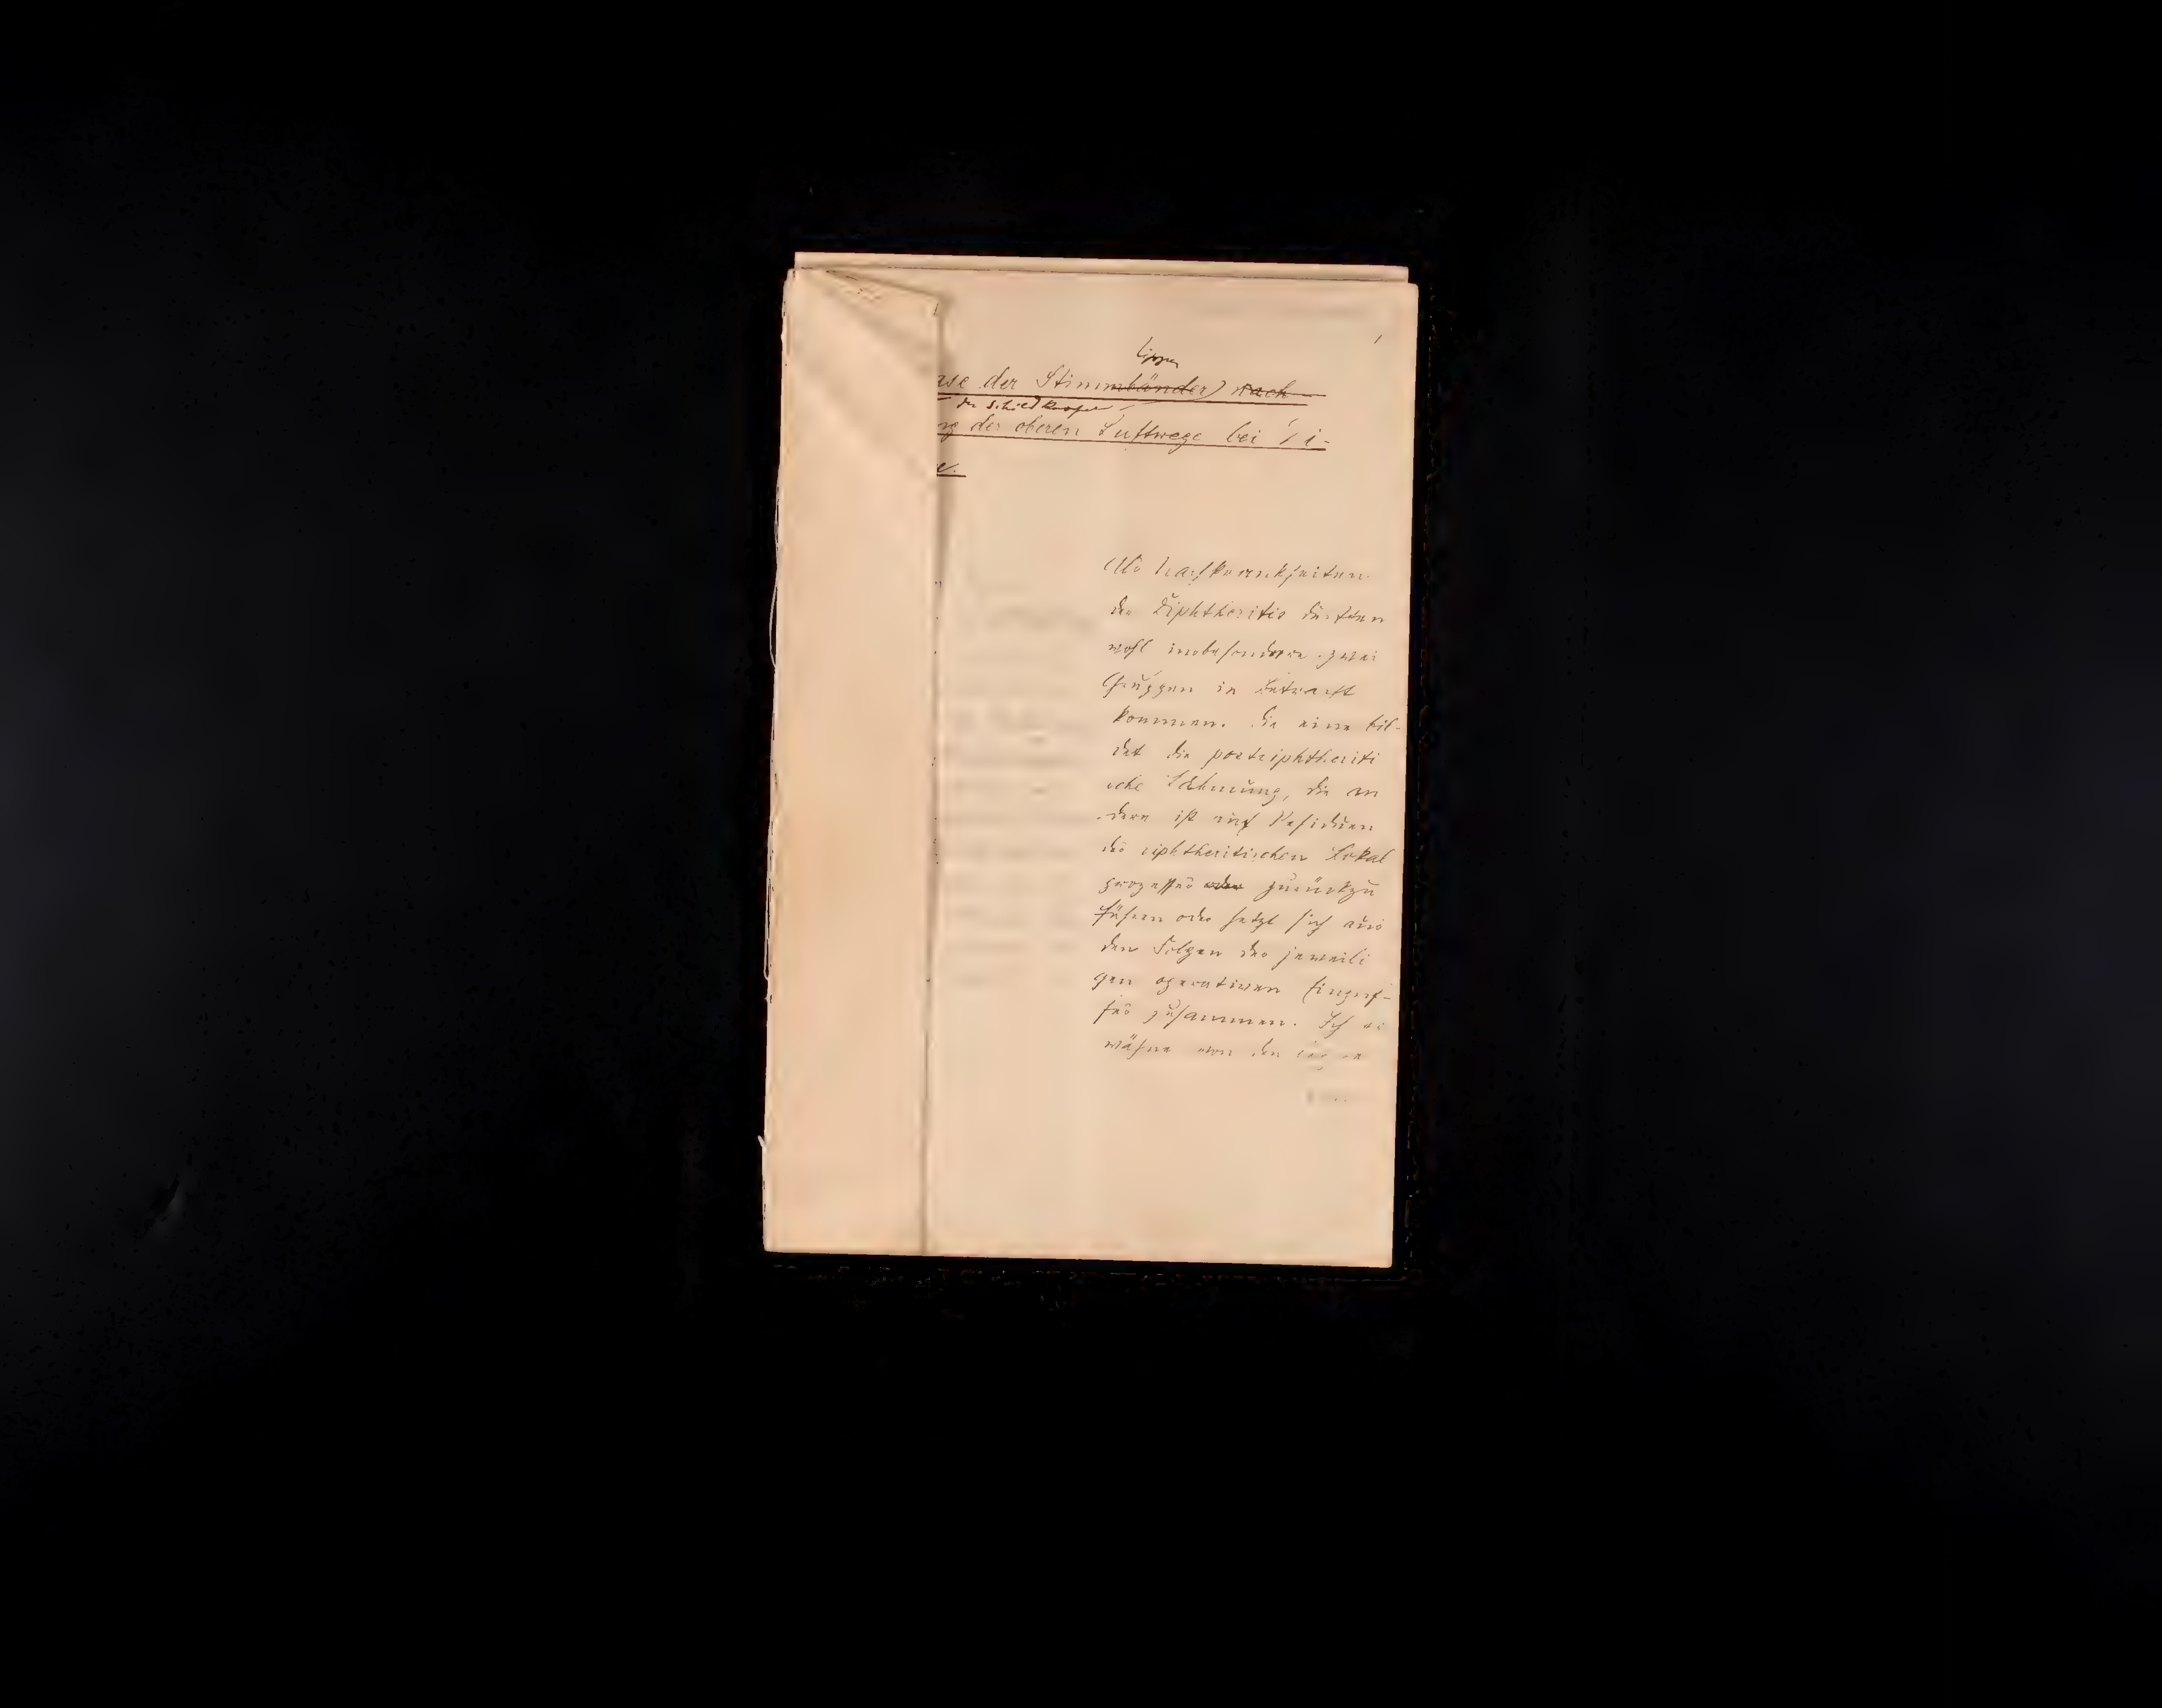 1
lippen
ase der Stimmbänder) nach
der Schildknorpel
ng der oberen Luftwege bei Di-
e.
Als Nachkrankheiten
der Diphtheritis dürften
wohl insbesondere zwei
Gruppen in Betracht
kommen. Die eine bil-
det die postdiphtheriti
sche Lähmung, die an
dere ist auf Residuen
des diphtheritischen Lokal
prozesses oder zurückzu
führen oder setzt sich aus
den Folgen des jeweili
gen operativen Eingrif-
fes zusammen. Ich er
wähne von den